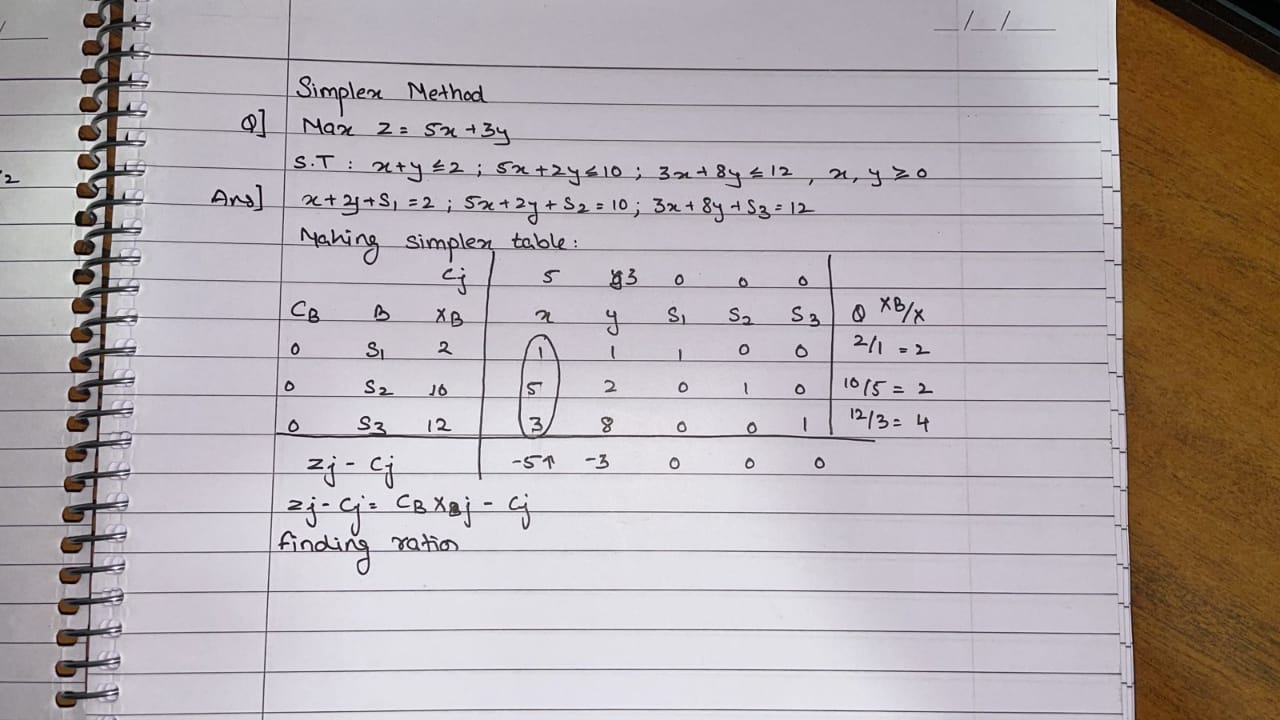 _/_/_
Simplex Method
Q] Max Z = 5x + 3y
S.T : x+y ≤ 2 ; 5x + 2y ≤ 10 ; 3x + 8y ≤ 12 , x, y ≥ 0
Ans] x + y + S1 = 2 ; 5x + 2y + S2 = 10 ; 3x + 8y + S3 = 12
Making simplex table :
Cj 5 3 0 0 0
CB B XB x y S1 S2 S3 θ XB/X
0 S1 2 1 1 1 0 0 2/1 = 2
0 S2 10 5 2 0 1 0 10/5 = 2
0 S3 12 3 8 0 0 1 12/3 = 4
Zj - Cj -5↑ -3 0 0 0
Zj - Cj = CB XBj - Cj
finding ratios